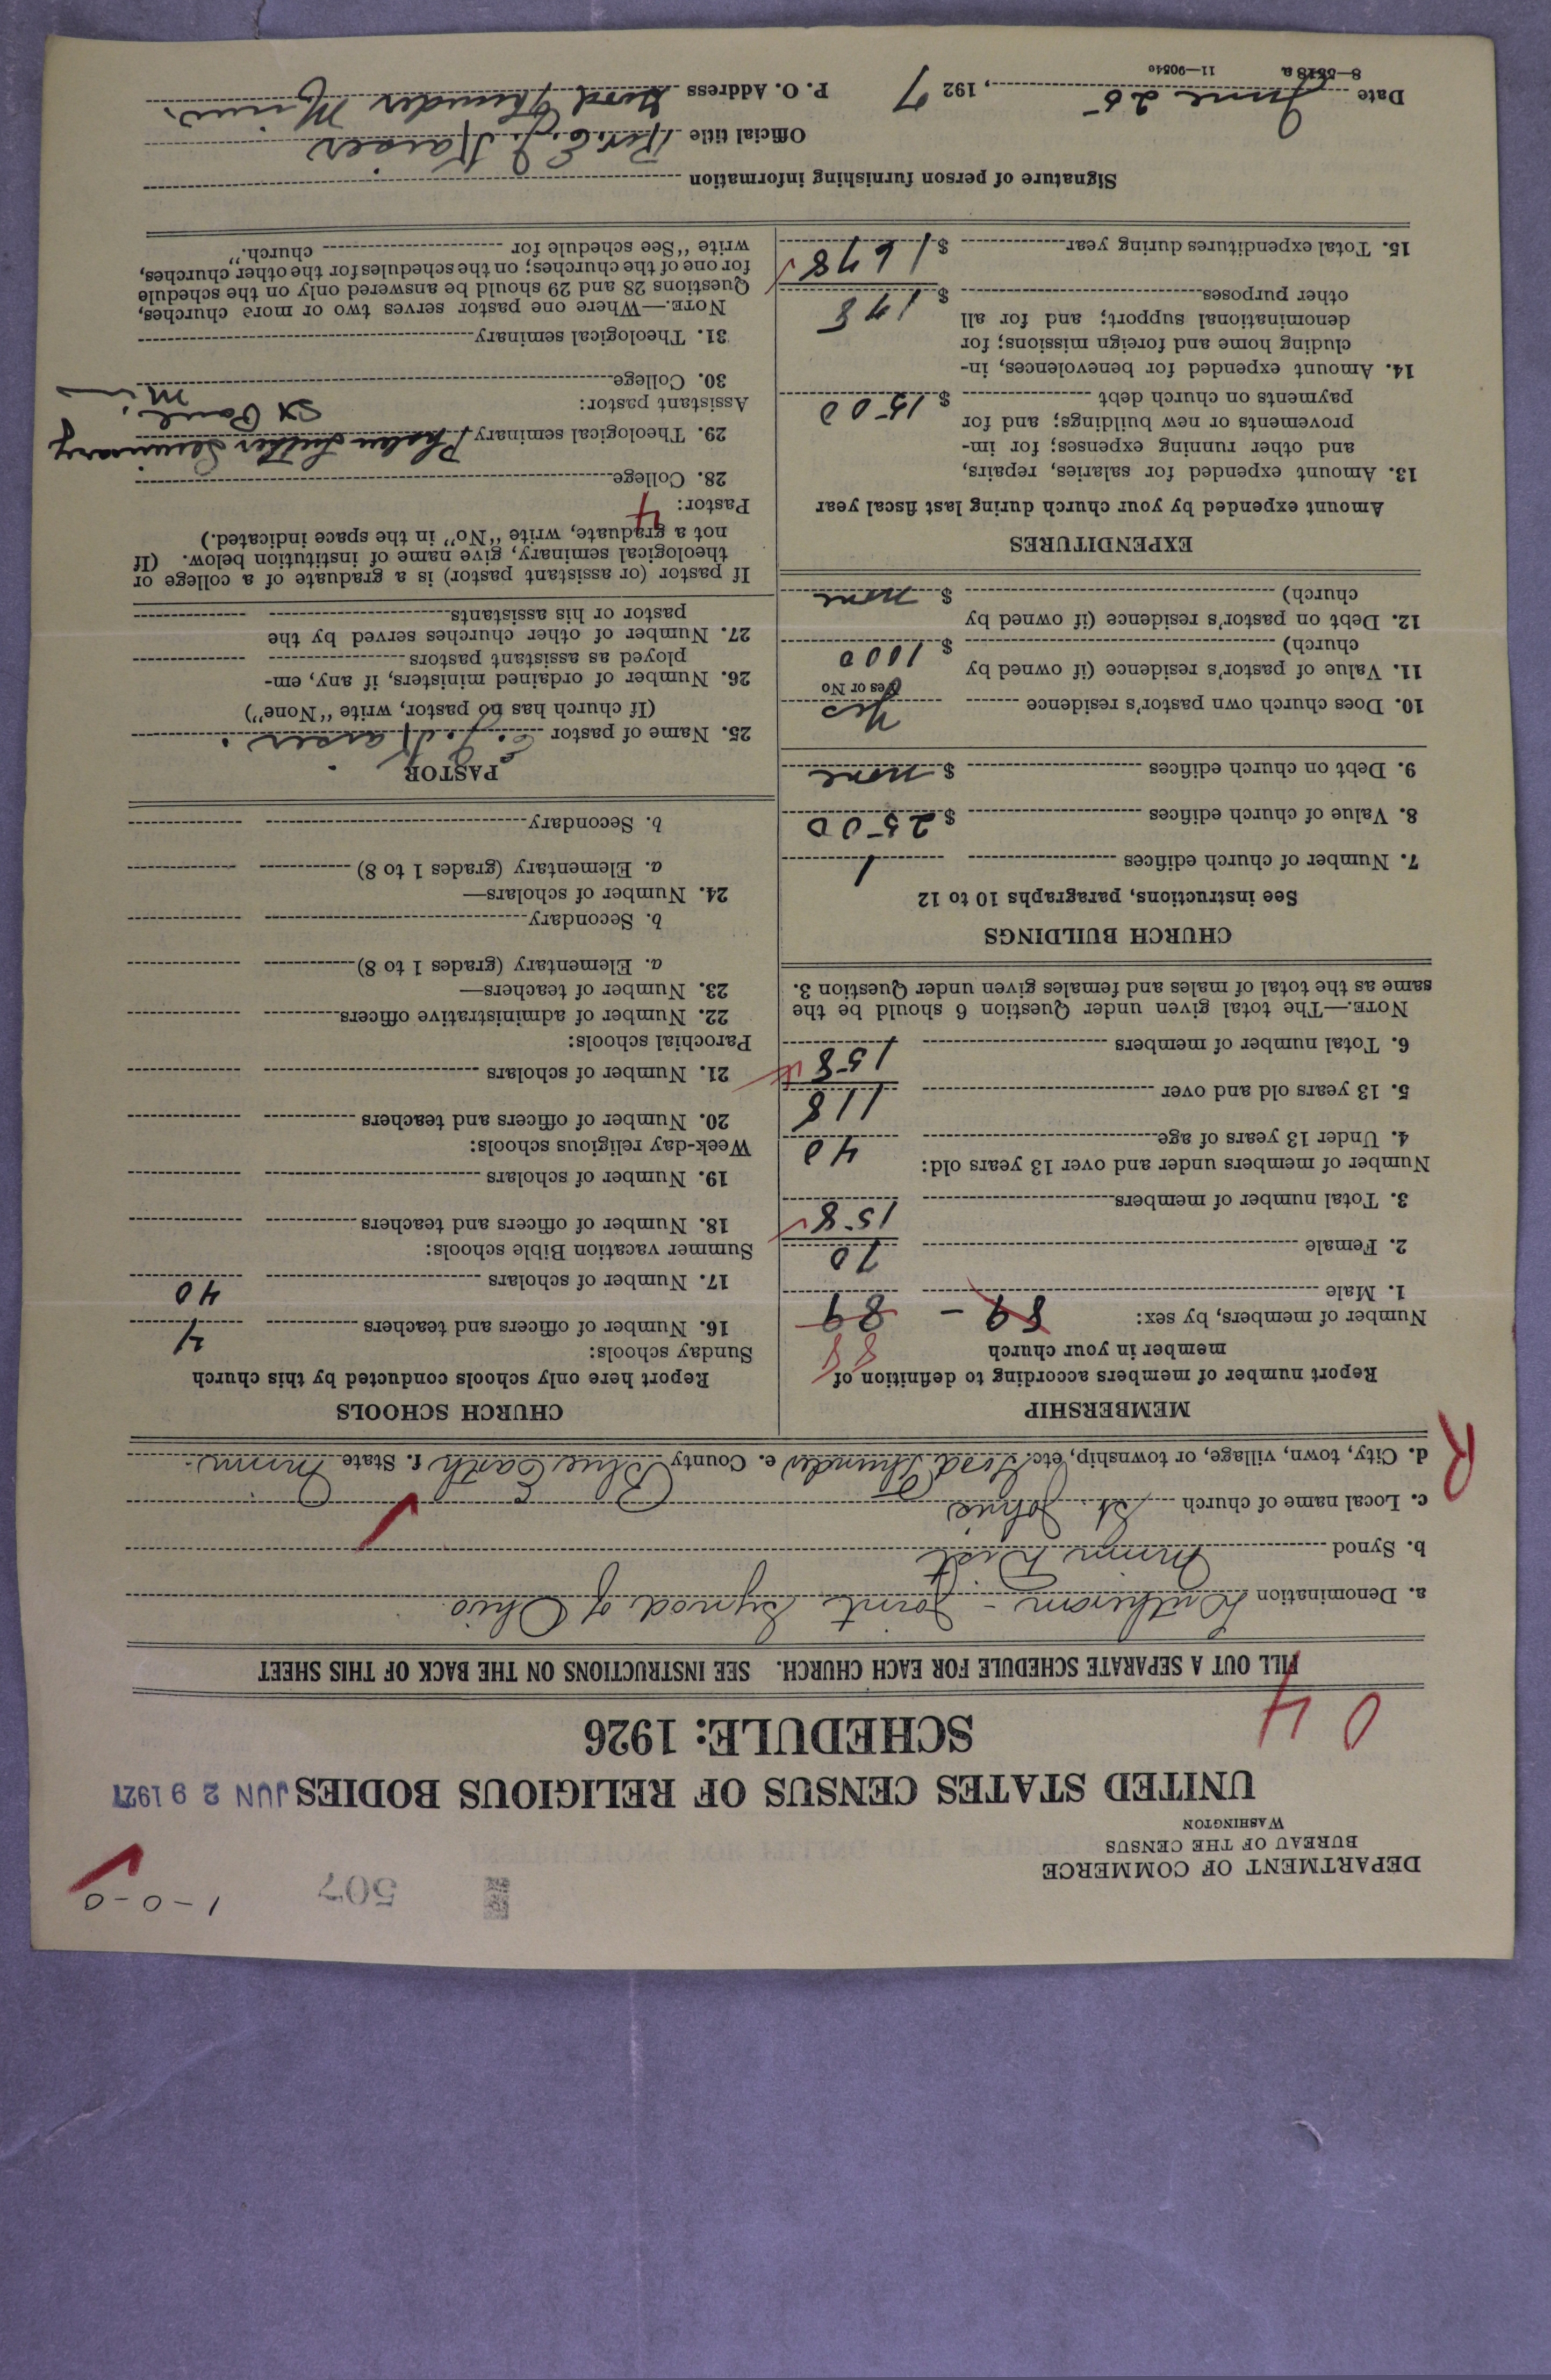 1-0-0
507
DEPARTMENT OF COMMERCE
BUREAU OF THE CENSUS
WASHINGTON
UNITED STATES CENSUS OF RELIGIOUS BODIES JUN 29 1927
SCHEDULE: 1926
04
FILL OUT A SEPARATE SCHEDULE FOR EACH CHURCH. SEE INSTRUCTIONS ON THE BACK OF THIS SHEET
a. Denomination Lutheran - Joint Synod of Ohio
b. Synod Minn Dist
c. Local name of church St. Johns
d. City, town, village, or township, etc. Good Thunder e. County Blue Earth f. State Minn.
R
MEMBERSHIP
Report number of members according to definition of
member in your church
88
Number of members, by sex:
89 - 89
1. Male
2. Female 70
3. Total number of members 158
Number of members under and over 13 years old:
4. Under 13 years of age 40
5. 13 years old and over 118
6. Total number of members 158
NOTE.—The total given under Question 6 should be the
same as the total of males and females given under Question 3.
CHURCH BUILDINGS
See instructions, paragraphs 10 to 12
7. Number of church edifices 1
8. Value of church edifices $ 2500
9. Debt on church edifices $ none
10. Does church own pastor's residence Yes
Yes or No
11. Value of pastor's residence (if owned by
church) $ 1000
12. Debt on pastor's residence (if owned by
church) $ none
EXPENDITURES
Amount expended by your church during last fiscal year
13. Amount expended for salaries, repairs,
and other running expenses; for im-
provements or new buildings; and for
payments on church debt $ 1500
14. Amount expended for benevolences, in-
cluding home and foreign missions; for
denominational support; and for all
other purposes $ 178
15. Total expenditures during year $ 1678
CHURCH SCHOOLS
Report here only schools conducted by this church
Sunday schools:
16. Number of officers and teachers 4
17. Number of scholars 40
Summer vacation Bible schools:
18. Number of officers and teachers
19. Number of scholars
Week-day religious schools:
20. Number of officers and teachers
21. Number of scholars
Parochial schools:
22. Number of administrative officers
23. Number of teachers—
a. Elementary (grades 1 to 8)
b. Secondary
24. Number of scholars—
a. Elementary (grades 1 to 8)
b. Secondary
PASTOR
25. Name of pastor E. J. Kaiser.
(If church has no pastor, write "None")
26. Number of ordained ministers, if any, em-
ployed as assistant pastors
27. Number of other churches served by the
pastor or his assistants
If pastor (or assistant pastor) is a graduate of a college or
theological seminary, give name of institution below. (If
not a graduate, write "No" in the space indicated.)
Pastor: 4
28. College
29. Theological seminary Phalen Luther Seminary
St Paul, Minn
Assistant pastor:
30. College
31. Theological seminary
NOTE.—Where one pastor serves two or more churches,
Questions 28 and 29 should be answered only on the schedule
for one of the churches; on the schedules for the other churches,
write "See schedule for church."
Signature of person furnishing information
Official title Rev. E. J. Kaiser
Date June 25, 1927 P. O. Address Good Thunder Minn.
8—5518a 11—9051e